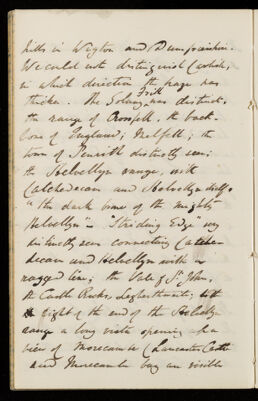 hills in Wigton and Dumfriesshire.
We could not distinguish Carlisle,
in which direction the haze was
thicker. The Solway Frith was distinct,
the range of Crossfell, the back
bone of England; Mellfell; the
town of Penrith distinctly seen;
the Helvellyn range, with
Catchedecam and Helvellyn itself,
"the dark brow of the mighty
Helvellyn" – "Striding Edge" very
distinctly seen connecting Catche-
decam and Helvellyn with a
ragged line; the Vale of St. John,
the Castle Rocks, Legberthwaite;
right of the end of the Helvellyn
range a long vista opening of a
view of Morecambe (Lancaster Castle
and Morecambe bay are visible